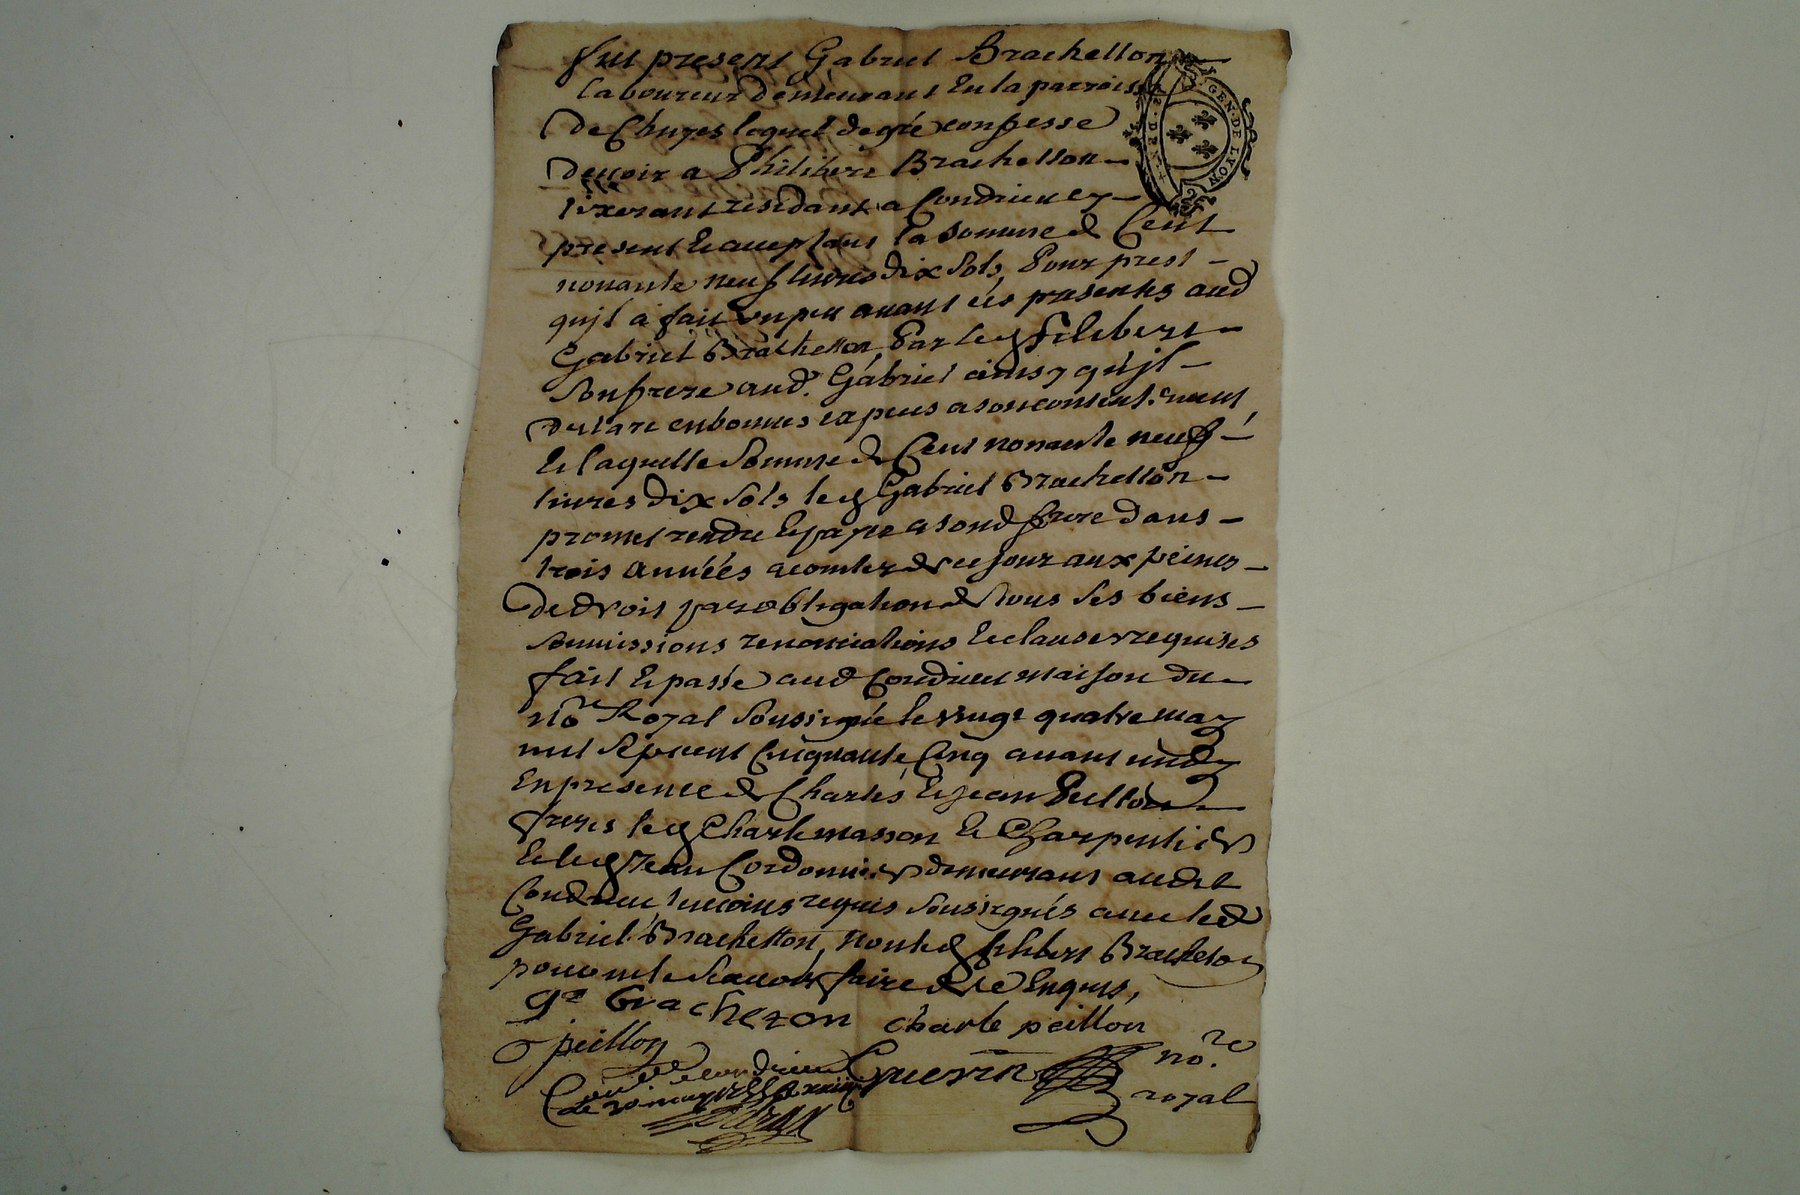 fut present Gabriel Brachetton
laboureur demeurant En la parroisse
GEN. DE LYON
de Chuyes lequel de gré confesse
devoir a Philibert Brachetton
tixerant residant a Condrieu ey
present Et acceptant la somme de Cent
nonante neuf livres dix sols, Pour prest
qu'jl a fait un peu avant ces presentes aud
Gabriel Brachetton, Par led filebert
son frere aud. Gabriel ainsy qu'jl
declare en bonnes especes a son contentement
Et laquelle somme de Cent nonante neuf
livres dix sols led Gabriel Brachetton
promet rendre Et payer a sond frere dans
trois années a comter de ce jour aux peines
de droit par obligation de tous ses biens
soumissions renonciations Et clauses requises
fait Et passé aud Condrieu maison du
no.re Royal soussigné le vingt quatre may
mil sept cent Cinquante Cinq avant midy
En presence de Charles Et Jean Peillon
freres led Charle masson Et Charpentier
Et led Jean Cordonnier demeurant audit
Condrieu temoins requis soussignés avec led
Gabriel Brachetton, non led filibert Brachetton
pour ne le scavoir faire de ce Enquis,
g.l brachezon charle peillon
J peillon
Guerin no.re
royal
Con.llé a Condrieu
le 30 may 1755